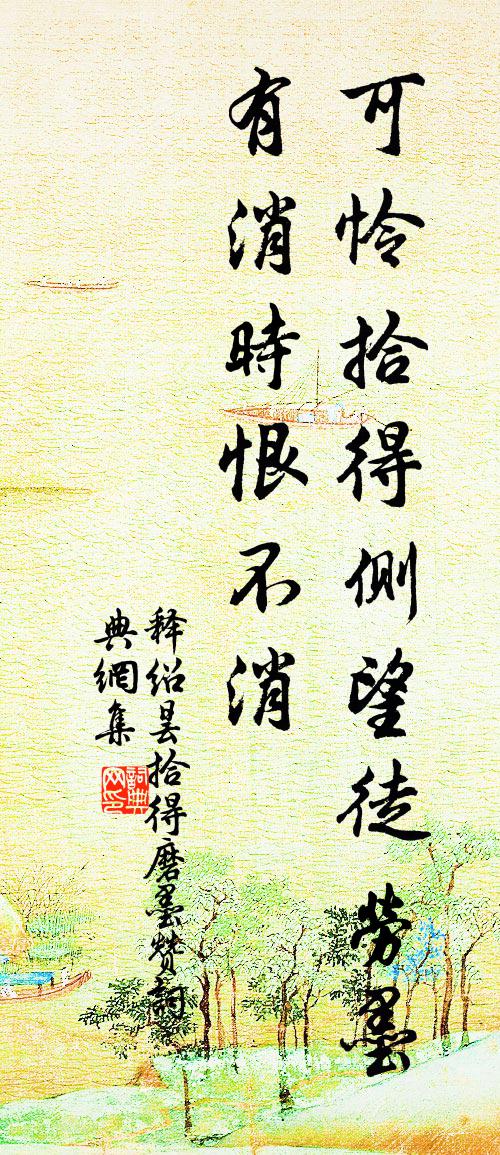 可怜拾得側望徒勞墨
有消時恨不消
释紹昙拾得磨墨赞詞
典網集
詞典
网印